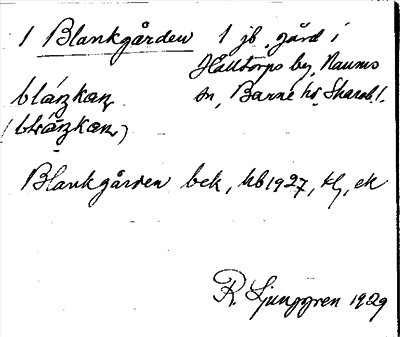 1 Blankgården 1 jb. gård i
Halltorps by, Naums
sn, Barne hd, Skarab. l.
blánkan
(blánkan)
Blankgården bek, hb 1927, kf, ek
R. Ljunggren 1929